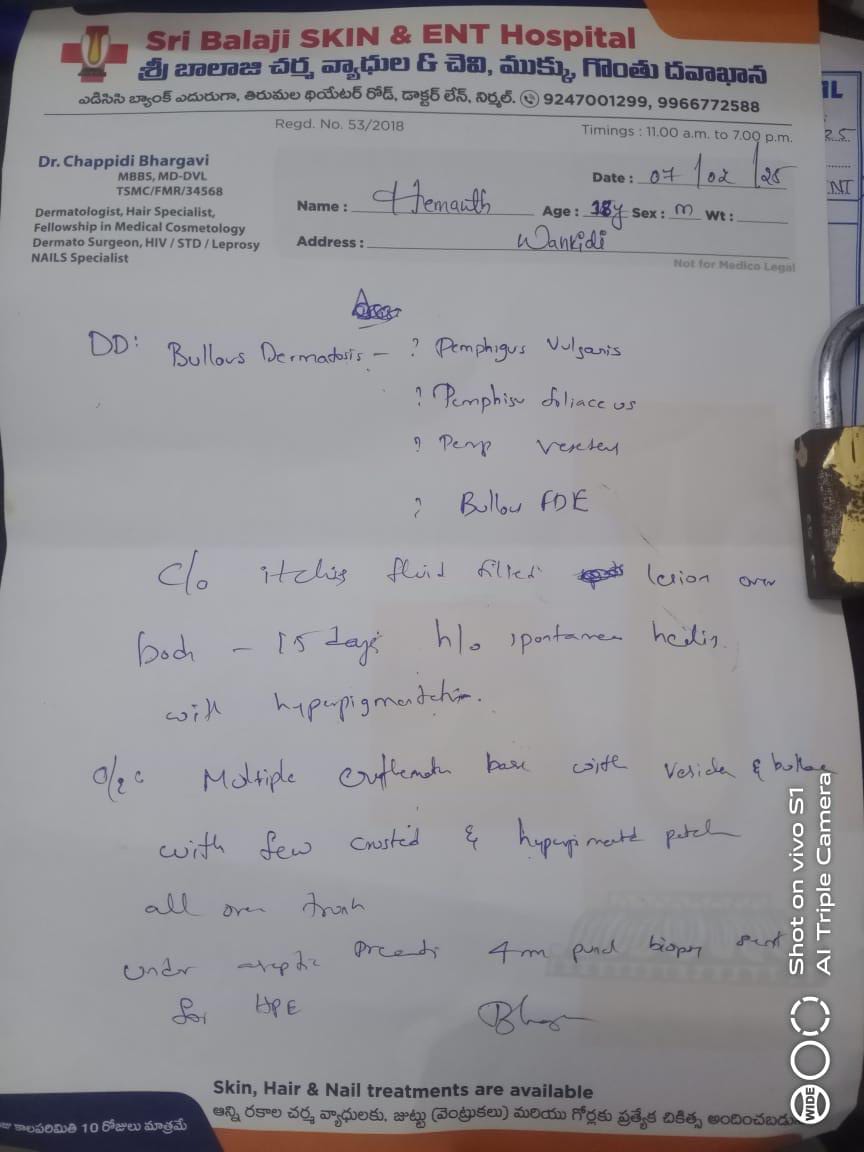 Sri Balaji SKIN & ENT Hospital
శ్రీ బాలాజి చర్మ వ్యాధుల & చెవి, ముక్కు, గొంతు దవాఖాన
ఎడిసిసి బ్యాంక్ ఎదురుగా, తిరుమల థియేటర్ రోడ్, డాక్టర్ లేన్, నిర్మల్. 9247001299, 9966772588
Regd. No. 53/2018
Timings : 11.00 a.m. to 7.00 p.m.
Dr. Chappidi Bhargavi
MBBS, MD-DVL
TSMC/FMR/34568
Dermatologist, Hair Specialist,
Fellowship in Medical Cosmetology
Dermato Surgeon, HIV / STD / Leprosy
NAILS Specialist
Date : 07/02/25
Name : Hemanth Age : 18y Sex : m Wt :
Address : Wankidi
Not for Medico Legal
DD: Bullous Dermatosis - ? Pemphigus Vulgaris
? Pemphisu foliaceus
? Pemp
? Bullou FDE
c/o itchis fluid filled lesion over
body - 15 days h/o spontaneu healis
with hyperpigmentation.
Multiple base with & bullae
with few crusted & patch
all over trunk
under aseptic 4m punch biopsy sent
for HPE
Skin, Hair & Nail treatments are available
అన్ని రకాల చర్మ వ్యాధులకు, జుట్టు (వెంట్రుకలు) మరియు గోర్లకు ప్రత్యేక చికిత్స అందించబడు
కాలపరిమితి 10 రోజులు మాత్రమే
Shot on vivo S1
AI Triple Camera
WIDE